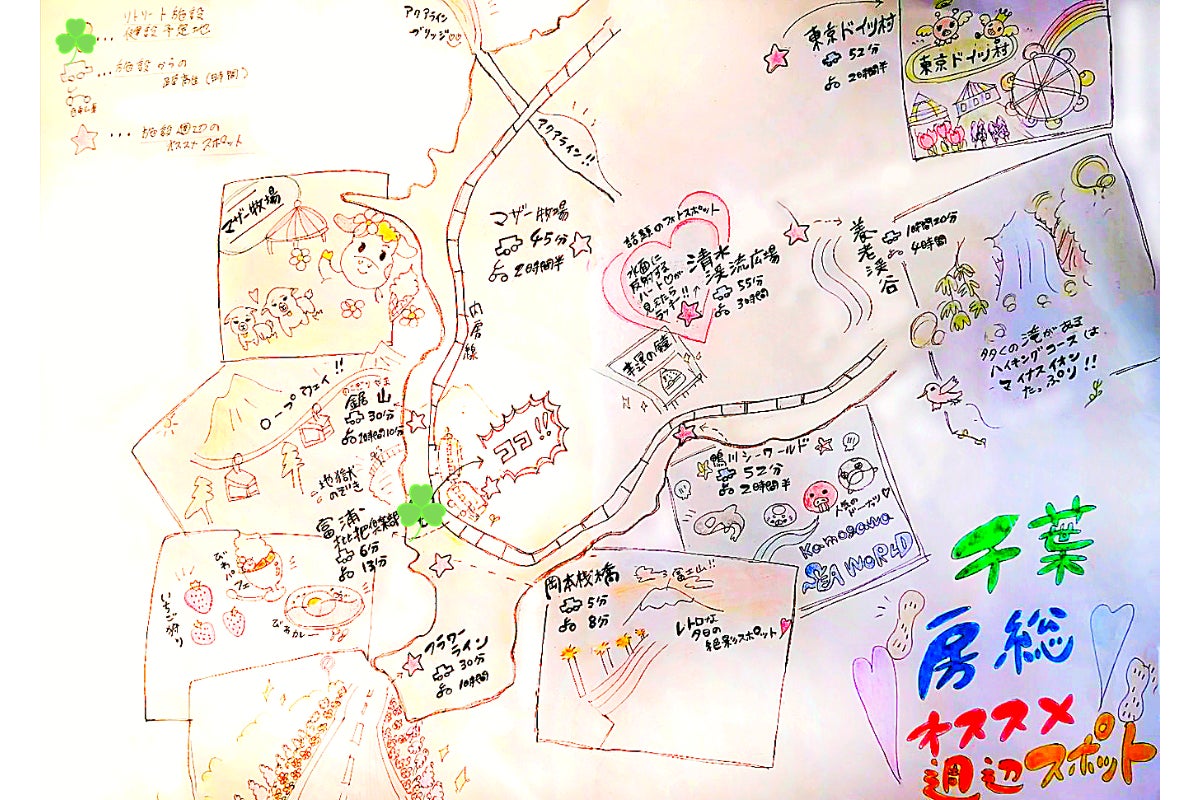 リトリート施設
建設予定地
... 施設からの
距離(時間)
自転車
... 施設周辺の
オススメスポット
アクアライン
ブリッジ
アクアライン!!
東京ドイツ村
52分
2時間半
東京ドイツ村
マザー牧場
マザー牧場
45分
2時間半
内房線
話題のフォトスポット
水面に
反射する
ハートが
見えたら
ラッキー!!
清水
渓流広場
55分
3時間
幸運の鐘
養老渓谷
1時間20分
4時間
多くの滝がある
ハイキングコースは
マイナスイオン
たっぷり!!
ロープウェイ!!
のこぎりやま
鋸山
30分
1時間10分
地獄
のぞき
ココ!!
富浦・
枇杷倶楽部
6分
13分
びわパフェ
いちご狩り
びわカレー
鴨川シーワールド
52分
2時間半
人気の
ドーナツ
Kamogawa
SEA WORLD
岡本桟橋
5分
8分
富士山!!
レトロな
夕日の
絶景スポット
フラワー
ライン
30分
1時間
千葉
房総
オススメ
周辺スポット